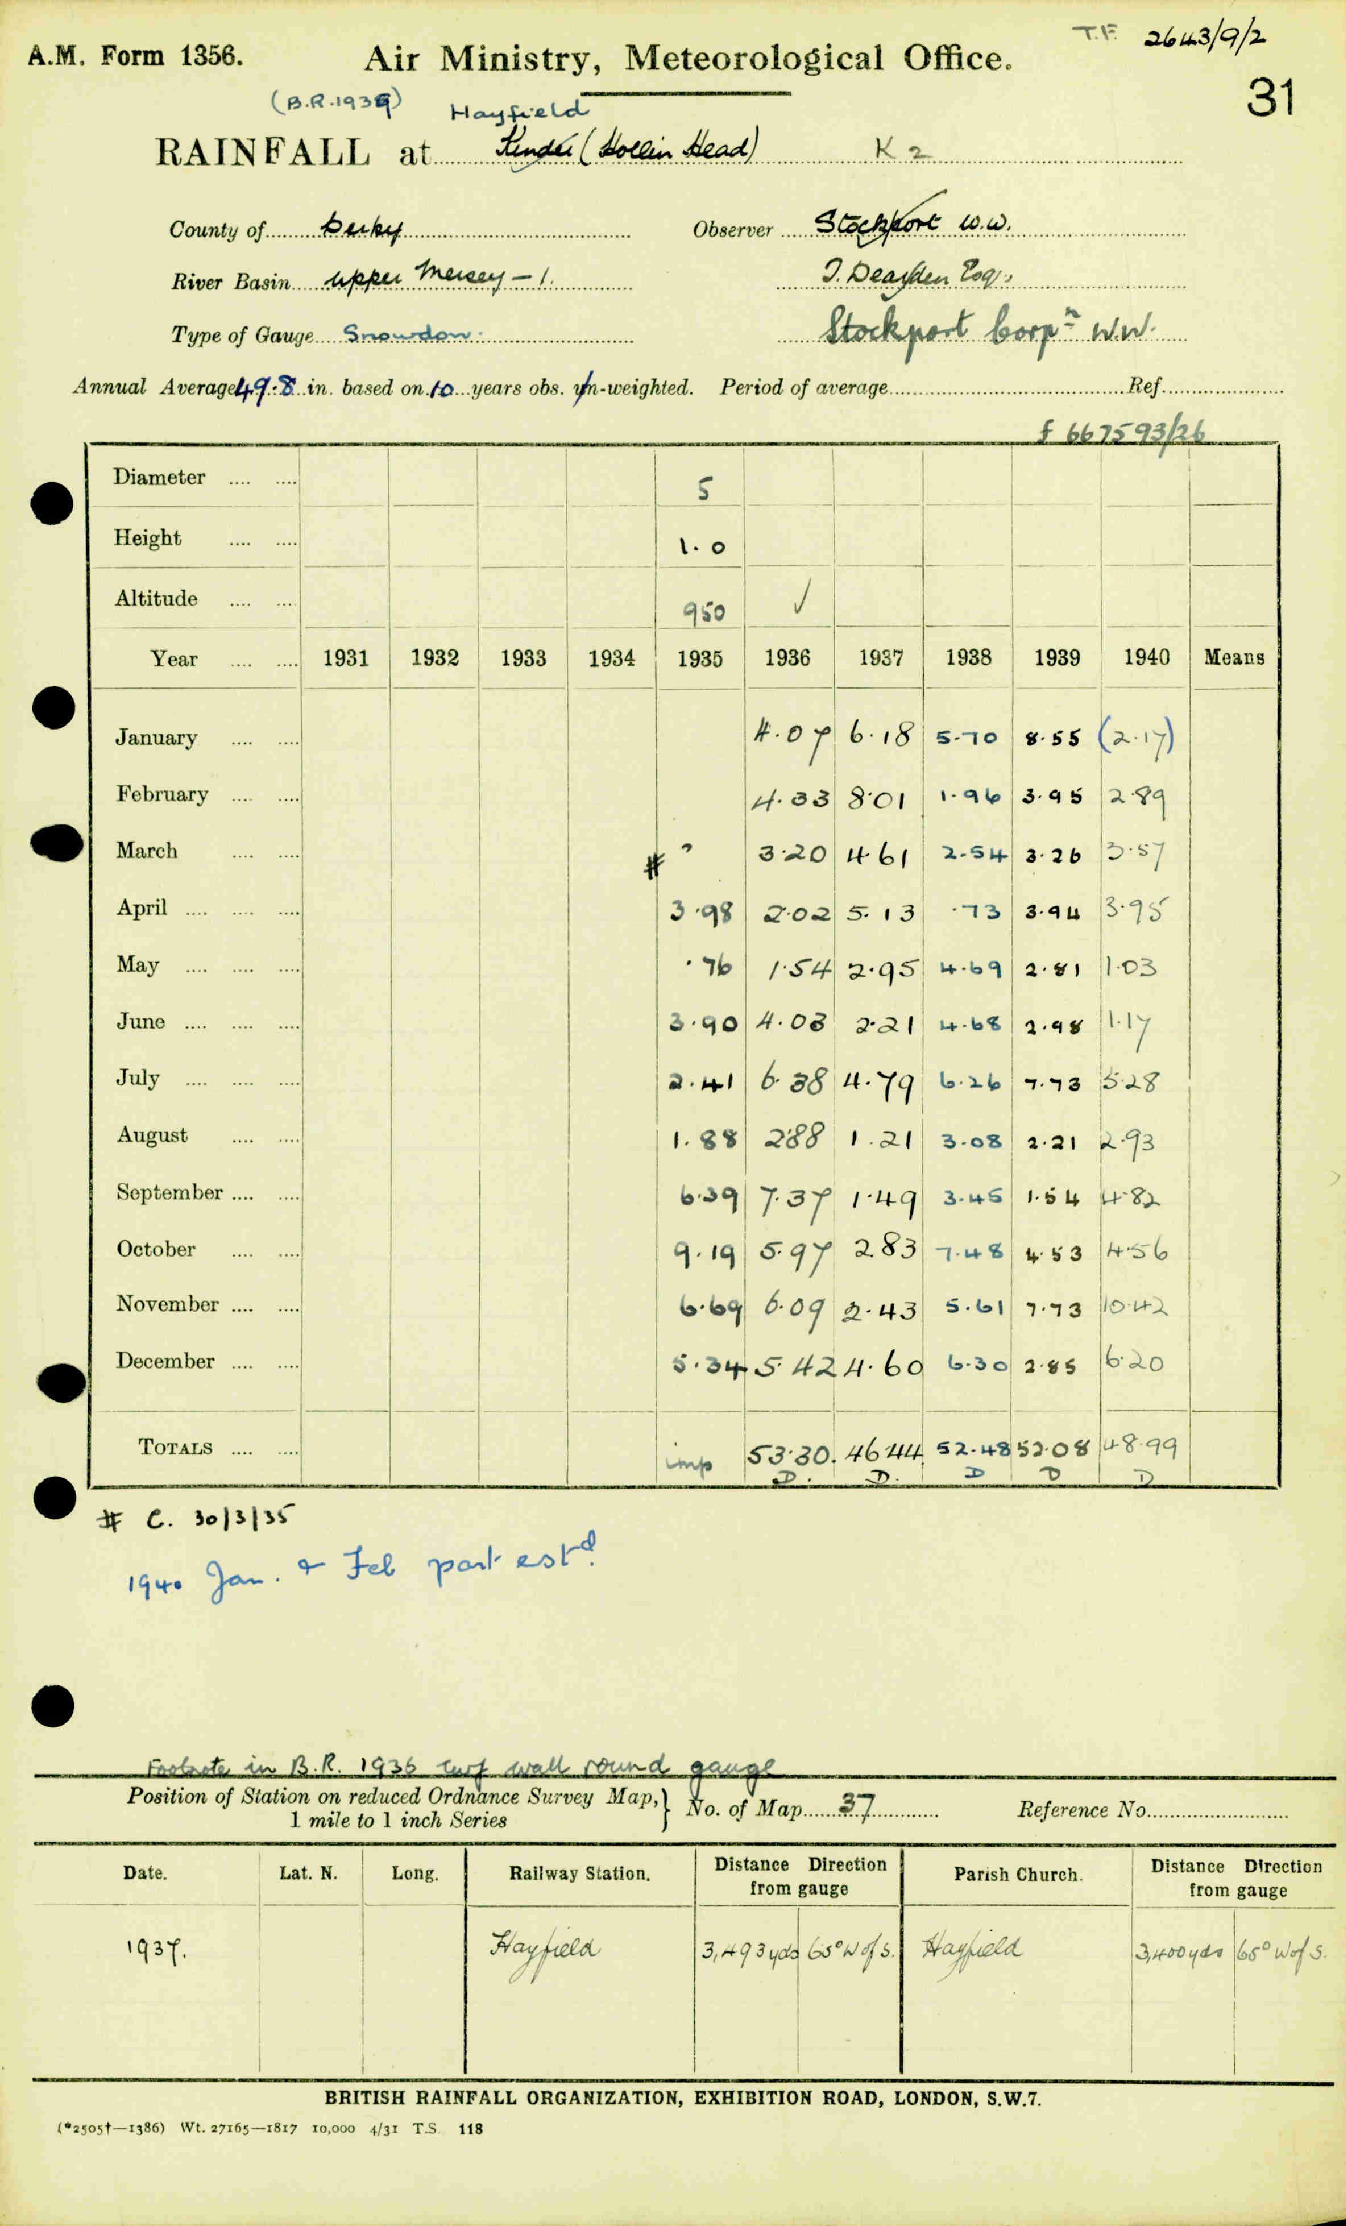 T.F. 2643/9/2
A.M. Form 1356. Air Ministry, Meteorological Office.
31
(B.R.1936) Hayfield
RAINFALL at Kinder (Hollin Head) K 2
County of Derby Observer Stockport W.W.
River Basin Upper Mersey - 1. J. Dearden Esq.,
Type of Gauge Snowdon. Stockport Corpn W.W.
Annual Average 49.8 in. based on 10 years obs. un-weighted. Period of average Ref.
f 667593/26
Diameter 5
Height 1.0
Altitude 950 ✓
Year 1931 1932 1933 1934 1935 1936 1937 1938 1939 1940 Means
January 4.07 6.18 5.70 8.55 (2.17)
February 4.33 8.01 1.96 3.95 2.89
March # " 3.20 4.61 2.54 3.26 3.57
April 3.98 2.02 5.13 .73 3.94 3.95
May .76 1.54 2.95 4.69 2.81 1.03
June 3.90 4.03 2.21 4.68 2.98 1.17
July 2.41 6.38 4.79 6.26 7.73 5.28
August 1.88 2.88 1.21 3.08 2.21 2.93
September 6.39 7.37 1.49 3.45 1.54 4.82
October 9.19 5.97 2.83 7.48 4.53 4.56
November 6.69 6.09 2.43 5.61 7.73 10.42
December 5.34 5.42 4.60 6.30 2.85 6.20
TOTALS imp 53.30. 46.44. 52.48 52.08 48.99
D. D. D D D
# C. 30/3/35
1940 Jan. & Feb part estd.
Footnote in B.R. 1936 turf wall round gauge
Position of Station on reduced Ordnance Survey Map, } No. of Map 37 Reference No.
1 mile to 1 inch Series
Date. Lat. N. Long. Railway Station. Distance Direction from gauge Parish Church. Distance Direction from gauge
1937. Hayfield 3,493 yds 65° W of S. Hayfield 3,400 yds 65° W of S.
BRITISH RAINFALL ORGANIZATION, EXHIBITION ROAD, LONDON, S.W.7.
(*2505†—1386) Wt. 27165—1817 10,000 4/31 T.S. 118